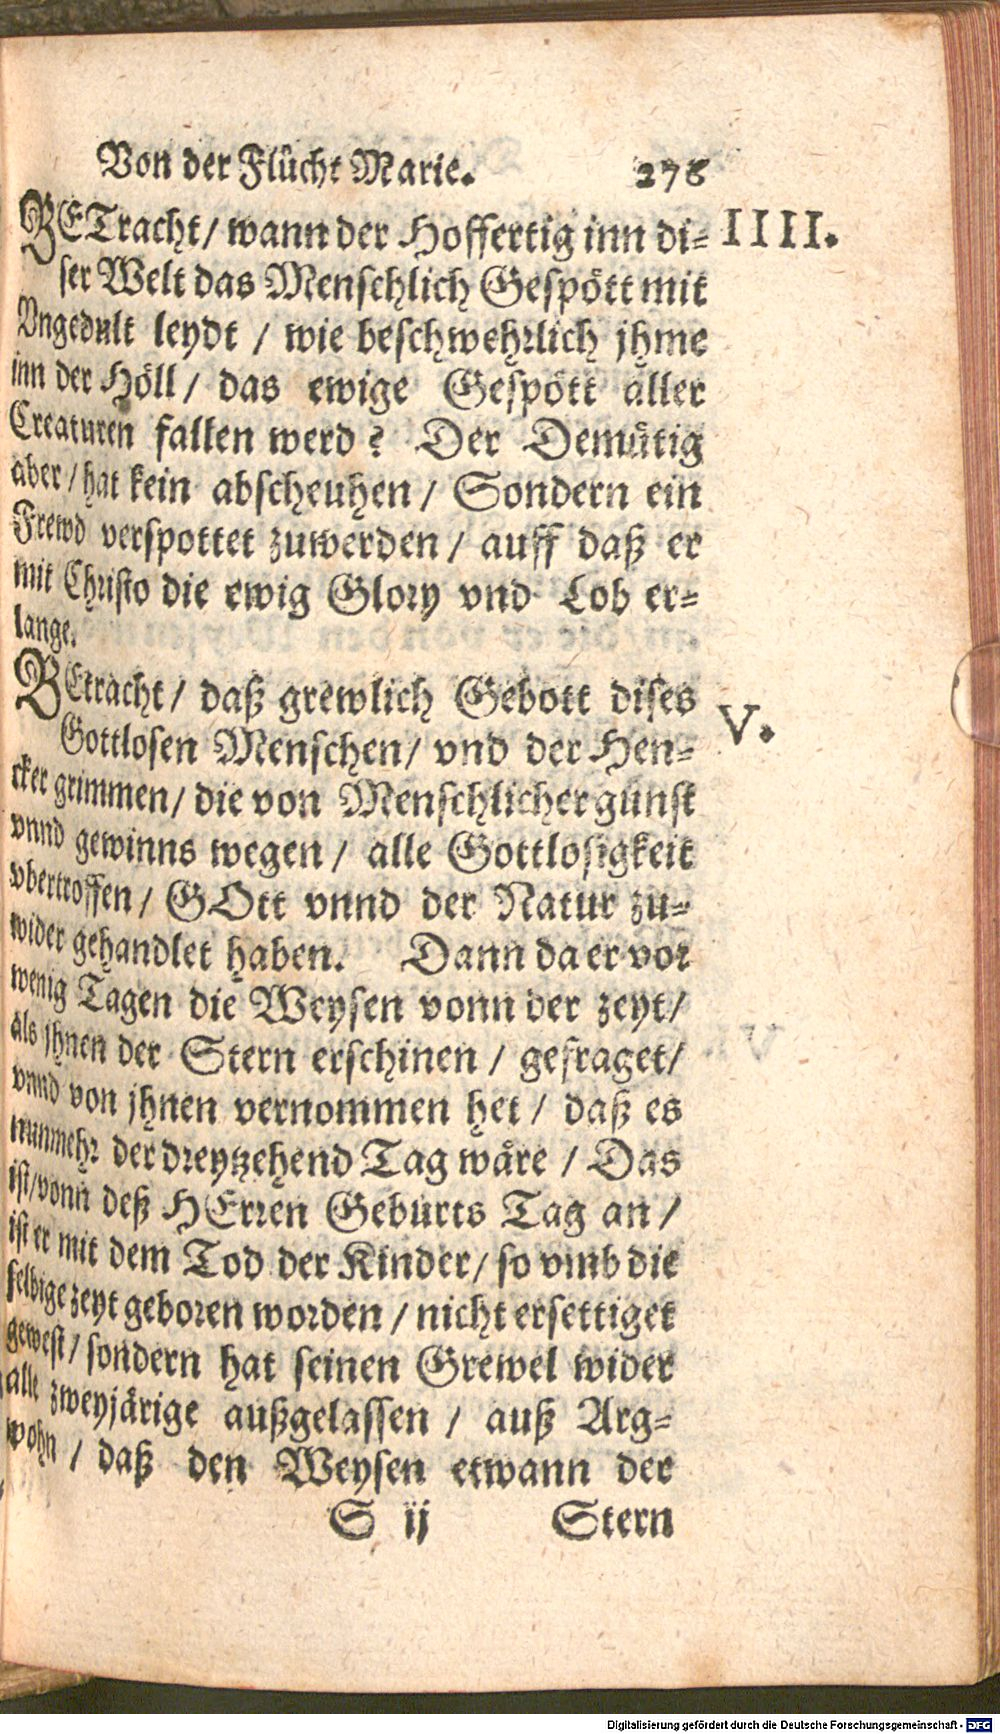 Von der Flücht Marie. 276
BETracht/ wann der Hoffertig inn di= IIII.
ser Welt das Menschlich Gespött mit
Vngedult leydt / wie beschwehrlich jhme
inn der Höll / das ewige Gespött aller
Creaturen fallen werd? Der Demütig
aber / hat kein abscheuhen / Sondern ein
Frewd verspottet zuwerden / auff daß er
mit Christo die ewig Glory vnd Lob er=
lange.
BEtracht / daß grewlich Gebott dises V.
Gottlosen Menschen / vnd der Hen=
cker grimmen / die von Menschlicher gunst
vnnd gewinns wegen / alle Gottlosigkeit
vbertroffen / GOtt vnnd der Natur zu=
wider gehandlet haben. Dann da er vor
wenig Tagen die Weysen vonn der zeyt /
als jhnen der Stern erschinen / gefraget /
vnnd von jhnen vernommen het / daß es
nunmehr der dreytzehend Tag wäre / Das
ist / vonn deß HErren Geburts Tag an /
ist er mit dem Tod der Kinder / so vmb die
selbige zeyt geboren worden / nicht ersettiget
gewest / sondern hat seinen Grewel wider
alle zweyjärige außgelassen / auß Arg=
wohn / daß den Weysen etwann der
S ij Stern
Digitalisierung gefördert durch die Deutsche Forschungsgemeinschaft - DFG